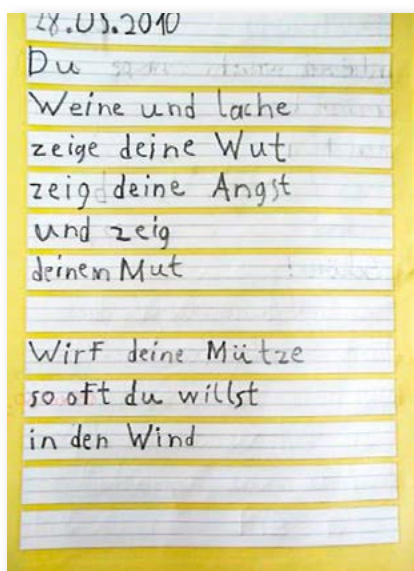 28.05.2010
Du
Weine und lache
zeige deine Wut
zeig deine Angst
und zeig
deinem Mut
Wirf deine Mütze
so oft du willst
in den Wind